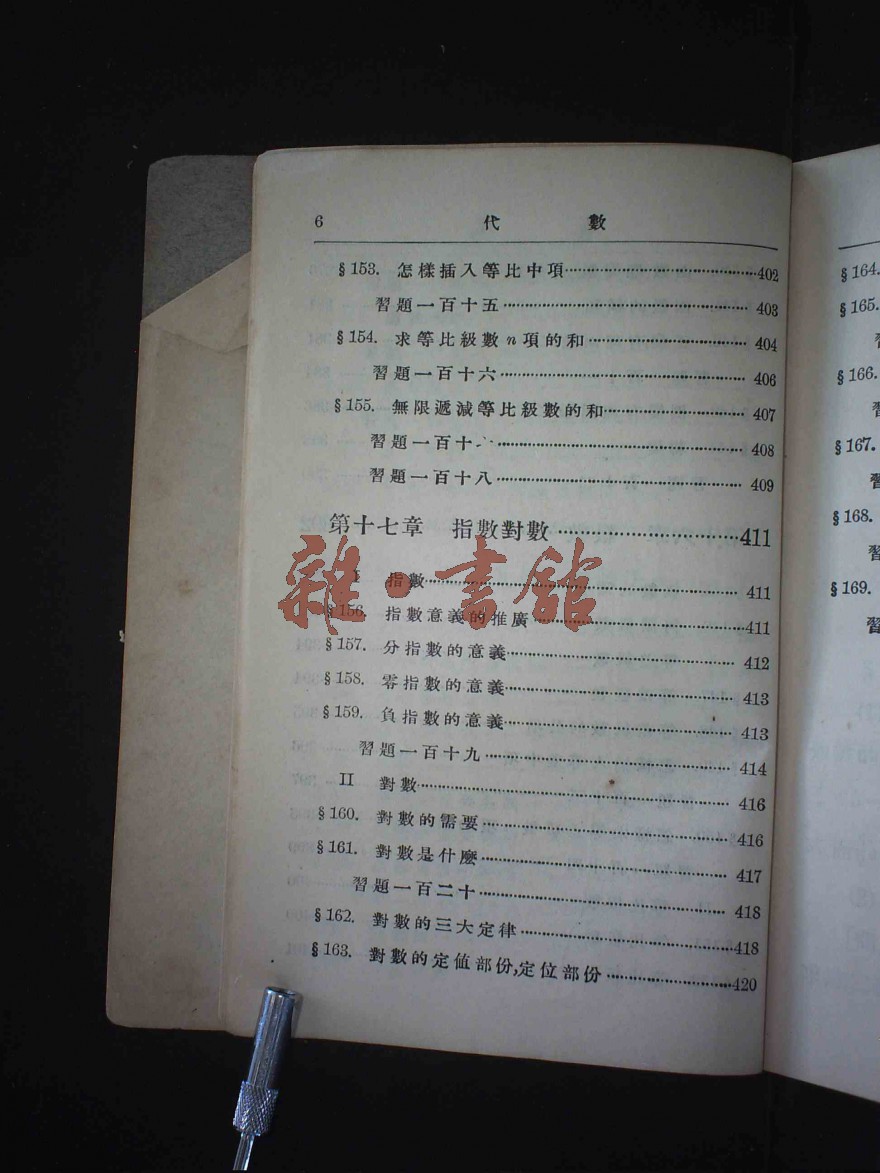 6 代數
§153. 怎樣插入等比中項 402
習題一百十五 403
§154. 求等比級數n項的和 404
習題一百十六 406
§155. 無限遞減等比級數的和 407
習題一百十 408
習題一百十八 409
第十七章 指數對數 411
I 指數 411
§156. 指數意義的推廣 411
§157. 分指數的意義 412
§158. 零指數的意義 413
§159. 負指數的意義 413
習題一百十九 414
II 對數 416
§160. 對數的需要 416
§161. 對數是什麼 417
習題一百二十 418
§162. 對數的三大定律 418
§163. 對數的定值部份,定位部份 420
雜·書館
§164.
§165.
§166.
§167.
§168.
§169.